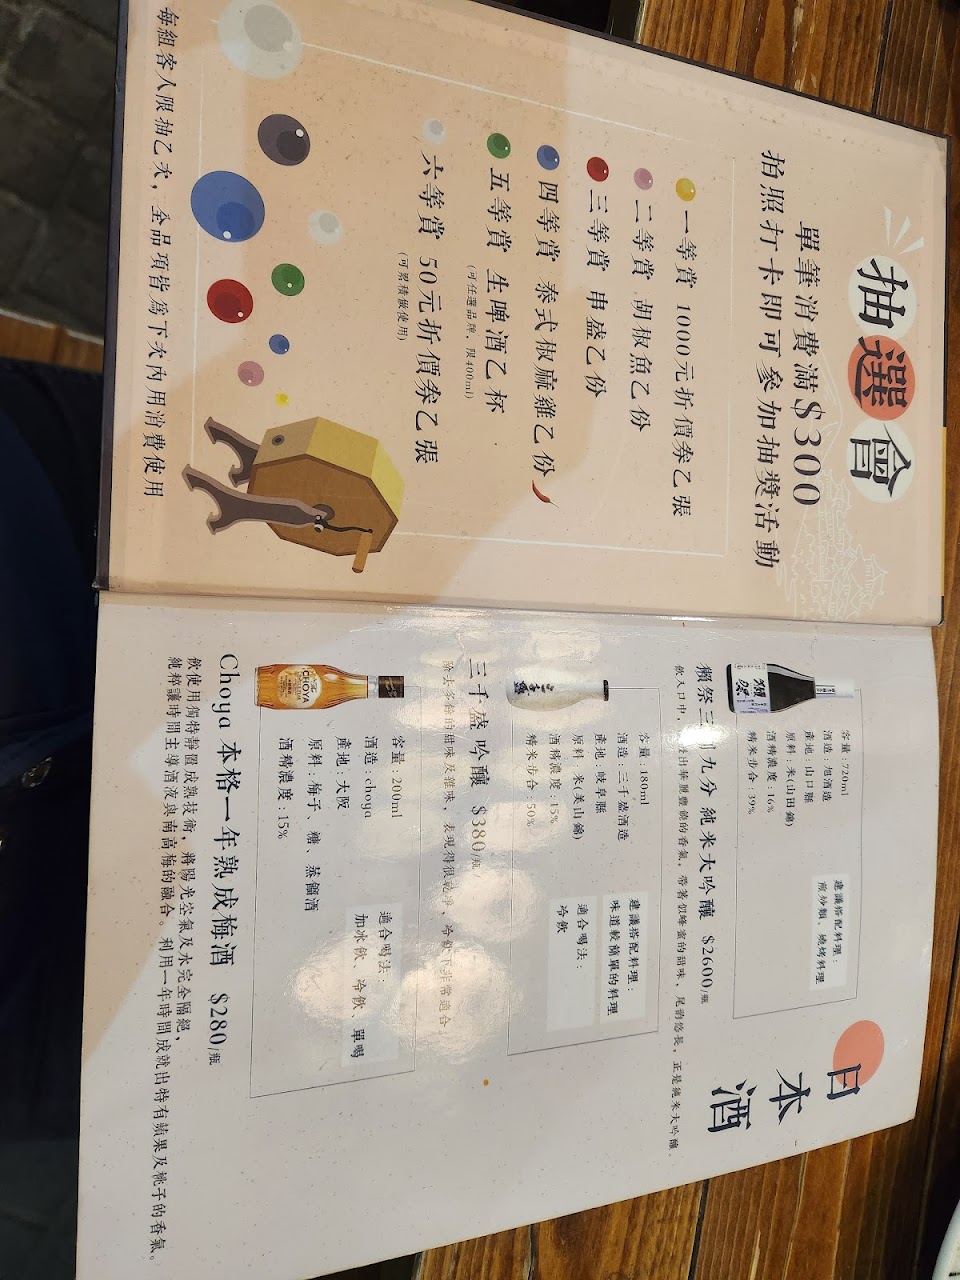 抽選會
單筆消費滿$300
拍照打卡即可參加抽獎活動
一等賞 1000元折價券乙張
二等賞 胡椒魚乙份
三等賞 串盛乙份
四等賞 泰式椒麻雞乙份
五等賞 生啤酒乙杯
(可任選品牌,限400ml)
六等賞 50元折價券乙張
(可累積做使用)
每組客人限抽乙次,全品項皆為下次內用消費使用
日本酒
容量:720ml
酒造:旭酒造
產地:山口縣
原料:米(山田錦)
酒精濃度:16%
精米步合:39%
建議搭配料理:
煎炒類、燒烤料理
獺祭三割九分 純米大吟釀 $2600/瓶
飲入口中,發出華麗豐饒的香氣,帶著似蜂蜜的甜味,尾韵悠長,正是純米大吟釀。
容量:180ml
酒造:三千盛酒造
產地:岐阜縣
原料:米(美山錦)
酒精濃度:15%
精米步合:50%
建議搭配料理:
味道較簡單的料理
適合喝法:
冷飲
三千盛 吟釀 $380/瓶
除去多餘的甜味及雜味,表現得很乾淨、冷卻下非常適合
CHOYA
容量:200ml
酒造:choya
產地:大阪
原料:梅子、糖、蒸餾酒
酒精濃度:15%
適合喝法:
加冰飲、冷飲、單喝
Choya 本格一年熟成梅酒 $280/瓶
飲使用獨特靜置成熟技術,將陽光空氣及水完全隔絕,
純粹讓時間主導酒液與南高梅的融合。利用一年時間成就出特有蘋果及桃子的香氣。